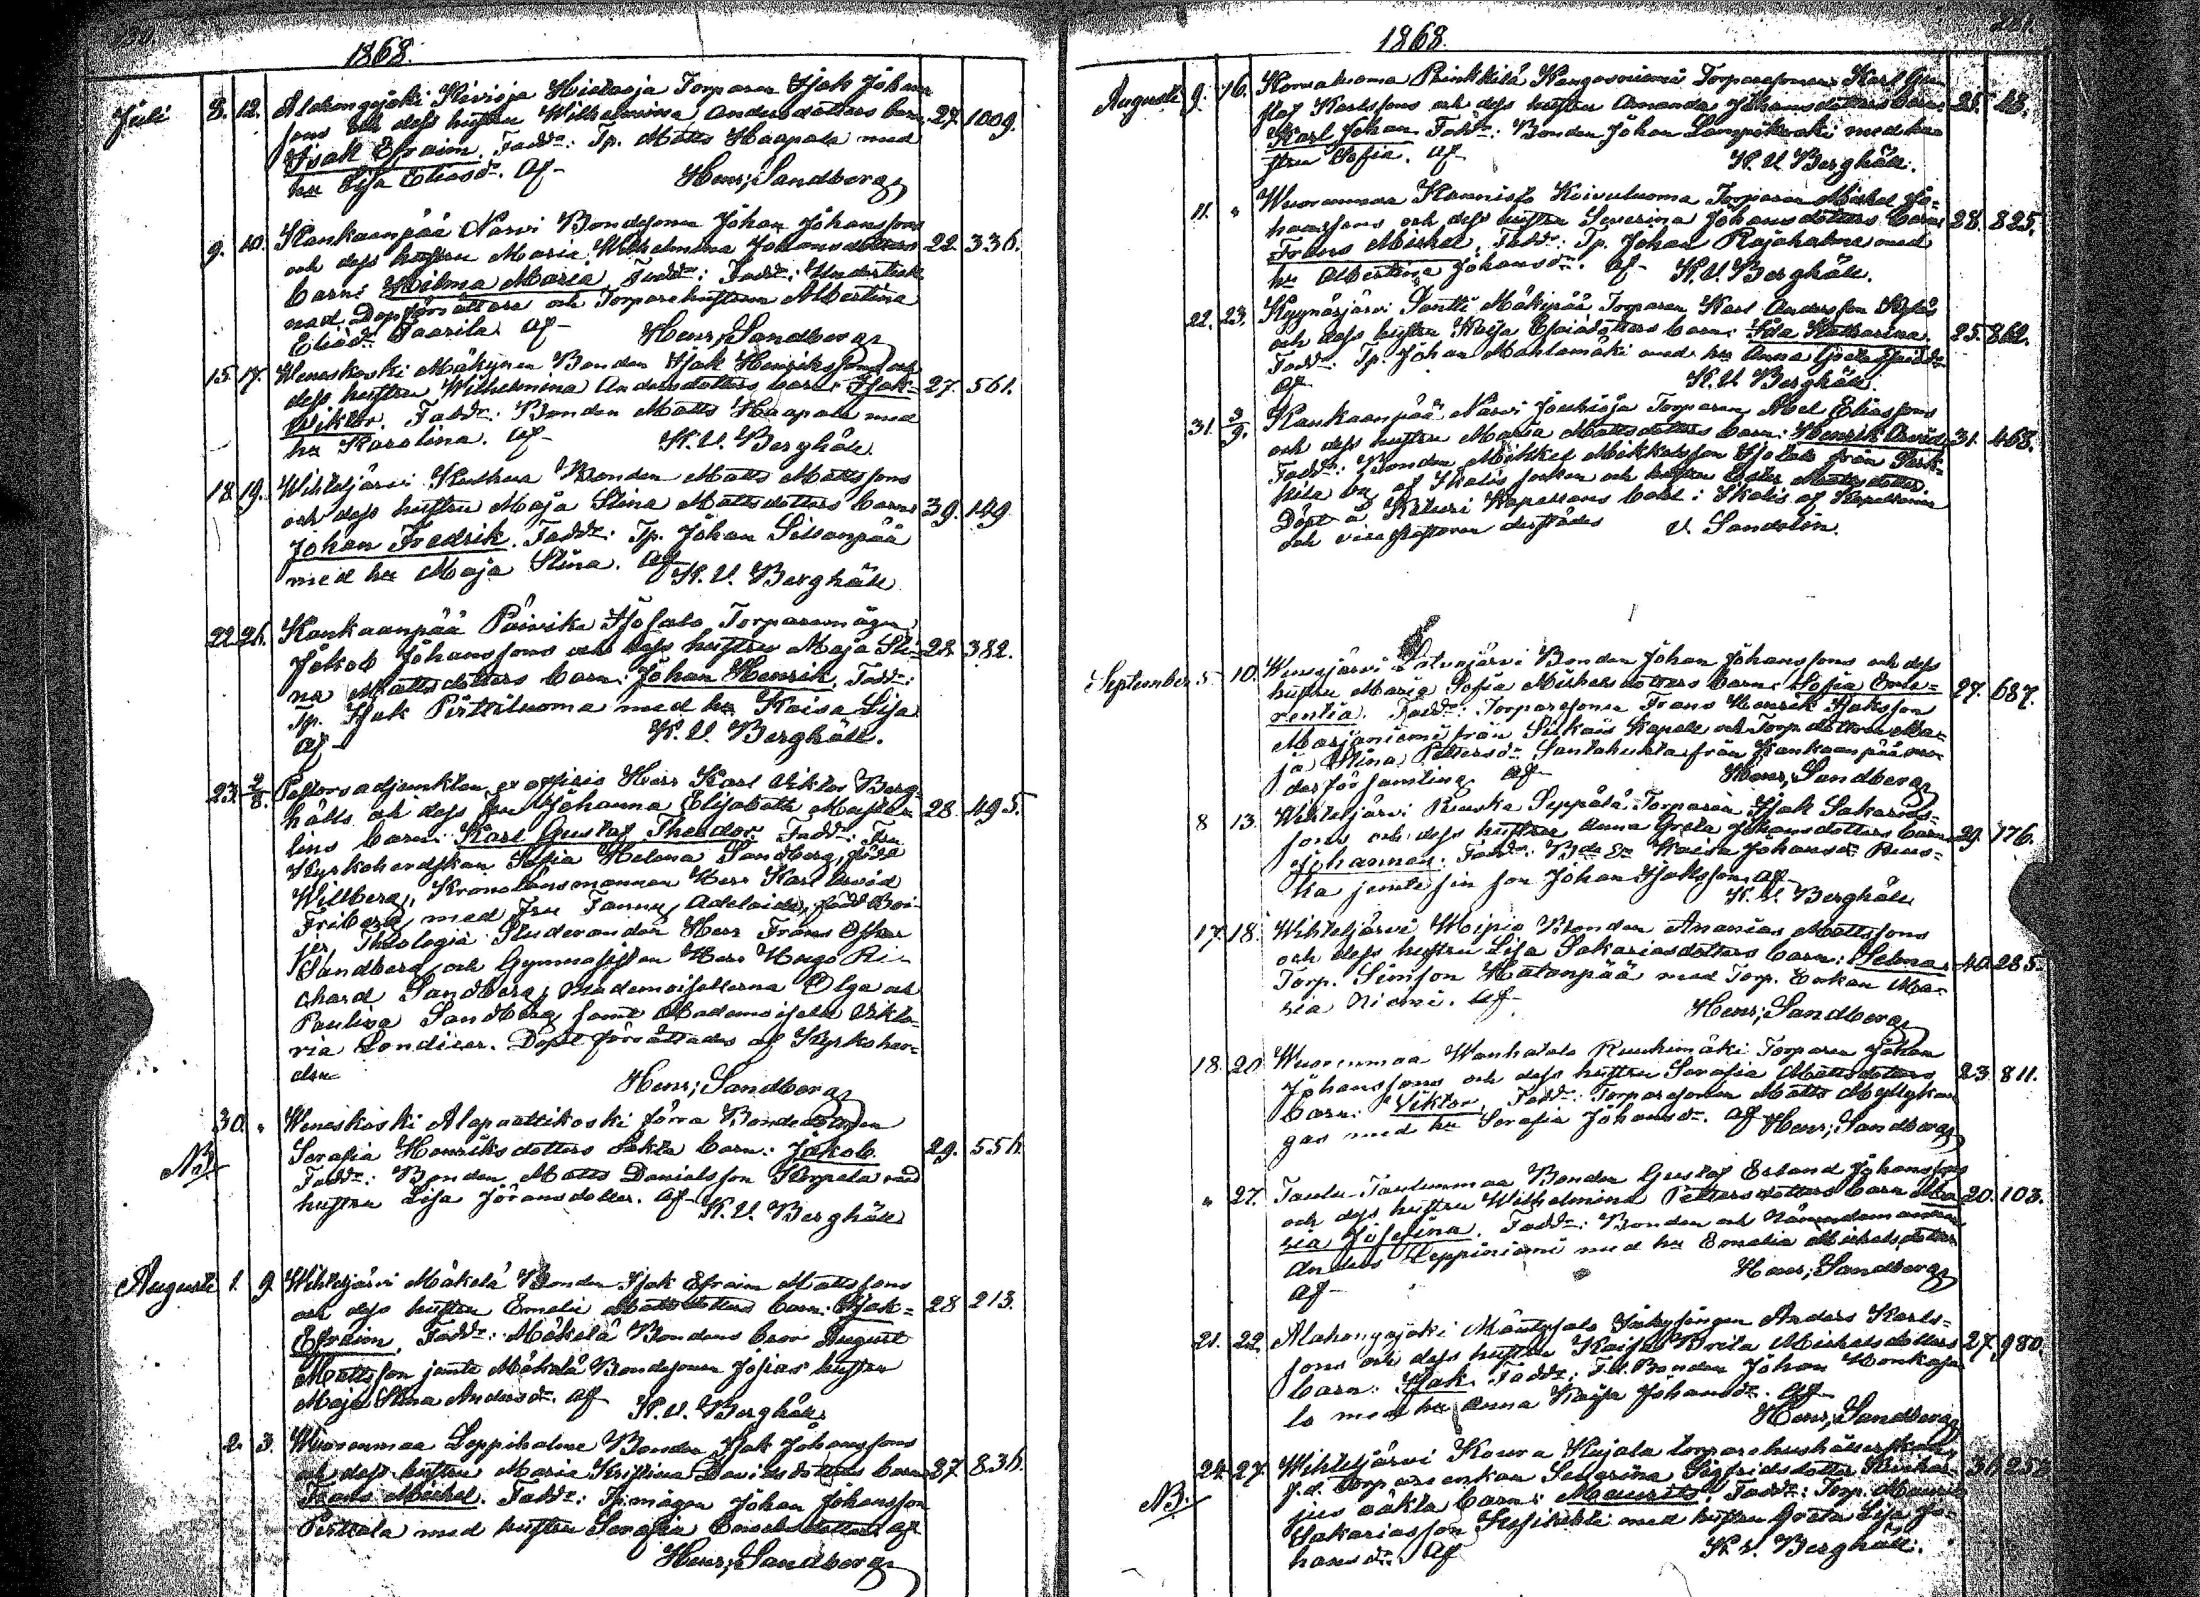 1868.
Juli 8. 12. Alahongojoki Kivioja Hietaoja Torparen Isak Johans
sons och dess hustru Wilhelmina Andersdotters barn 27. 1009.
Isak Efraim. Fadd: Tp. Matts Haapala med
hu Lisa Eliasdr. af
Henr; Sandberg
9. 10. Kankaanpää Narvi Bondesonen Johan Johanssons
och dess hustru Maria Wilhelmina Johansdotters 22. 336.
barn: Hilma Maria Fadd: Fadd: Undertecknad Dopförrättare och Torparehustrun Albertina
Eliedr. Saarila af
Henr; Sandberg
15. 17. Weneskoski Mäkynen Bonden Isak Henrikssons och
dess hustru Wilhelmina Andersdotters barn: Isak- 27. 561.
Wiktor. Fadd: Bonden Matts Haapala med
hu Karolina. af
K. V. Berghäll
18. 19. Wihteljärvi Bonden Matts Mattssons
och dess hustru Maja Stina Mattsdotters barn 39. 149
Johan Fredrik. Fadd: Tp. Johan Sillanpää
med hu Maja Stina. af
K. V. Berghäll
22. 26. Kankaanpää Päivike Isosalo Torparemågen
Jakob Johanssons och dess hustru Maja Sti- 22. 382.
na Mattsdotters barn: Johan Henrik. Fadd:
Tp. Isak Pirttiluoma med hu Kaisa Lisa
af
K. V. Berghäll.
23. 2/8. Pastorsadjunkten, ex officio Herr Karl Viktor Berg-
hälls och dess fru Johanna Elisabeth 28. 495.
lins barn: Karl Gustaf Theodor. Fadd: Fru
Kyrkoherdskan Sofia Helena Sandberg, född
Willberg, Kronolänsmannen Herr Karl Arvid
Friberg med Fru Fanny Adelaide, född Boi-
jer, Theologiä Studeranden Herr Frans Oskar
Sandberg och Gymnasisten Herr Hugo Ri-
chard Sandberg, Mademoisellerna Olga och
Paulina Sandberg samt Mademoiselle Vikto-
ria Londicer. Dopet förrättades af Kyrkoher-
den
Henr; Sandberg
30. " Weneskoski Alapaattikoski förra Bondedottren
NB. Serafia Henriksdotters oäkta barn: Jakob. 29. 556.
Fadd: Bonden Matts Danielsson Korpela med
hustru Lisa Göransdotter. af
K. V. Berghäll
Augusti 1. 9. Wihteljärvi Mäkelä Bonden Isak Efraim Mattssons
och dess hustru Emelie Mattsdotters barn: Isak- 28 213.
Efraim. Fadd: Mäkelä Bondens bror August
Mattsson jemte Mäkelä Bondesonen Josias hustru
Maja Stina Andersdr. af
K. V. Berghäll
2. 3. Wuorenmaa Leppihalme Bonden Isak Johanssons
och dess hustru Maria Kristina Davidsdotters barn 37. 836.
Frans Mickel. Fadd: Tp.mågen Johan Johansson
Perttala med hustru Serafia af
Henr; Sandberg
1868.
Augusti 9. 16. Honkakoski Kangasniemi Torparesonen Karl Gu-
staf Karlssons och dess hustru Amanda Johansdotters barn 25. 48.
Karl Johan. Fadd: Bonden Johan Lamppikoski med hu-
stru Sofia. af
K. V. Berghäll.
11. " Wuorenmaa Hannisto Koivuluoma Torparen Mickel Jo-
hanssons och dess hustru Severina Johansdotters barn 28. 825.
Frans Mickel. Fadd: Tp. Johan Rajahalme med
hu Albertina Johansdr. af K. V. Berghäll.
22. 23. Kyynärjärvi Santti Mäkipää Torparen Karl Andersson
och dess hustru Kaisa Esaiedotters barn: Ida Katharina. 25. 862.
Fadd: Tp. Johan Mahlamäki med hu Anna Greta
af
K. V. Berghäll.
31. 3/9. Kankaanpää Narvi Jouhioja Torparen Abel Eliassons
och dess hustru Maria Mattsdotters barn: Henrik Arvid. 31. 463.
Fadd: Bonden Mickel Mikkelsson Isotalo från
by af Ikalis socken och hustru
Döpt å Kapellans bohl i Ikalis af Kapellanen
och vice Pastoren derstädes V. Sandelin.
September 5 10. Wenesjärvi Latvajärvi Bonden Johan Johanssons och dess
hustru Maria Sofia Mickelsdotters barn: Sofia Eme- 27. 687.
rentia. Fadd: Torparesonen Frans Henrik Isaksson
Marjaniemi från Siikais Kapell och Torp.dottren Ma-
ja Stina Pettersdr. Santahuhta från Kankaanpää mo-
derförsamling af
Henr; Sandberg
8 13. Wihteljärvi Ruuska Seppälä Torparen Isak Sakarias-
sons och dess hustru Anna Greta Johansdotters barn 29. 176.
Johannes. Fadd: Kaisa Johansdr. Ruus-
ka jemte sin son Johan Isaksson, af
K. V. Berghäll
17. 18. Wihteljärvi Bonden Ananias Mattssons
och dess hustru Lisa Sakariasdotters barn: Selma. 40. 285.
Torp. Simson Hatanpää med Torp. Enkan Ma-
ria Niemi. af
Henr; Sandberg
18. 20 Wuorenmaa Wanhatalo Ruuhimäki Torparen Johan
Johanssons och dess hustru Serafia Mattsdotters 23. 811.
barn: Viktor. Fadd: Torparesonen Matts Myllykan-
gas med hu Serafia Johansdr. af Henr; Sandberg
" 27. Taulu Taulunmaa Bonden Gustaf Erland Johanssons
och dess hustru Wilhelmina Pettersdotters barn Ma- 20. 103.
ria Josefina. Fadd: Bonden och Nämndemannen
Anders Leppiniemi med hu Emelia Mickelsdotter
af
Henr; Sandberg
21. 22. Alahongojoki Mäntysalo Anders Karls-
sons och dess hustru Kaisa Brita Mickelsdotters 27. 980.
barn: Isak. Fadd: Bonden Johan Honkasa-
lo med hu Anna Kaisa Johansdr. af
Henr; Sandberg
24. 27. Wihteljärvi Koura Kujala
NB. f.d. Torpareenkan Severina Sigfridsdotter 31. 25
oäkta barn: Maurits. Fadd: Torp. Maurits
Sakariasson med hustru Greta Lisa Jo-
hansdr. af
K. V. Berghäll.